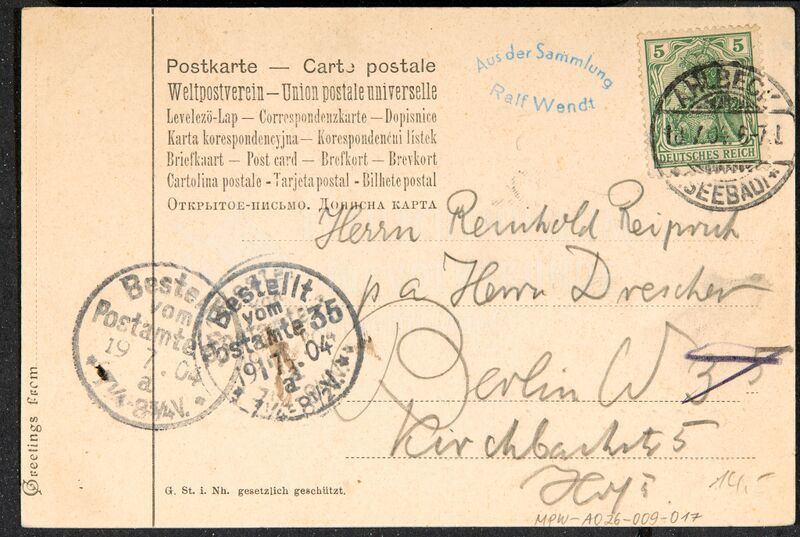 Postkarte — Carte postale
Weltpostverein — Union postale universelle
Levelezö-Lap — Correspondenzkarte — Dopisnice
Karta korespondencyjna — Korespondenčni listek
Briefkaart — Post card — Brefkort — Brevkort
Cartolina postale - Tarjeta postal - Bilhete postal
Открытое-письмо. Дописна карта
Aus der Sammlung
Ralf Wendt
5 5
DEUTSCHES REICH
AHLBECK
18.7.04. 6-7.
(SEEBAD)
Herrn Reinhold
p a Herrn Drescher
Berlin W 35
Kirchbachstr 5
Bestellt
vom
Postamte
19 7. 04
7 1/4-8 3/4 V.
Bestellt
vom
Postamte 35
19. 7. 04
7 1/4-8 1/2 V.
Greetings from
G. St. i. Nh. gesetzlich geschützt.
14,-
MPW-A026-009-017